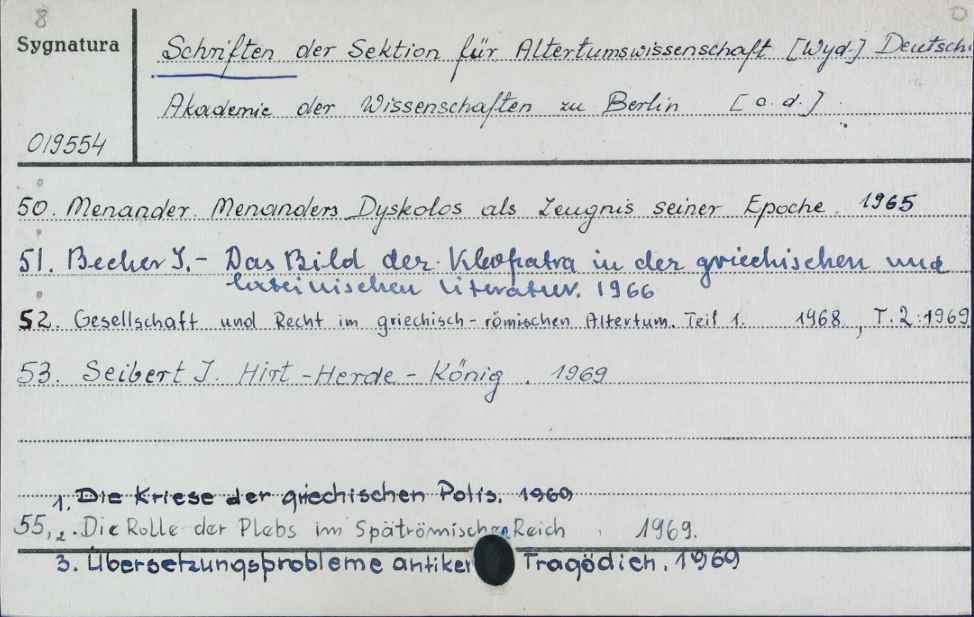 8
Sygnatura
Schriften der Sektion für Altertumswissenschaft [Wyd.] Deutsch
Akademie der Wissenschaften zu Berlin [o. d.]
019554
50. Menander. Menanders Dyskolos als Zeugnis seiner Epoche. 1965
51. Becher I.- Das Bild der Kleopatra in der griechischen und
lateinischen Literatur. 1966
52. Gesellschaft und Recht im griechisch-römischen Altertum. Teil 1. 1968, T.2:1969
53. Seibert J. Hirt-Herde-König. 1969
1. Die Kriese der griechischen Polis. 1969
55,2. Die Rolle der Plebs im Spätrömischen Reich, 1969.
3. Übersetzungsprobleme antiker Tragödien. 1969